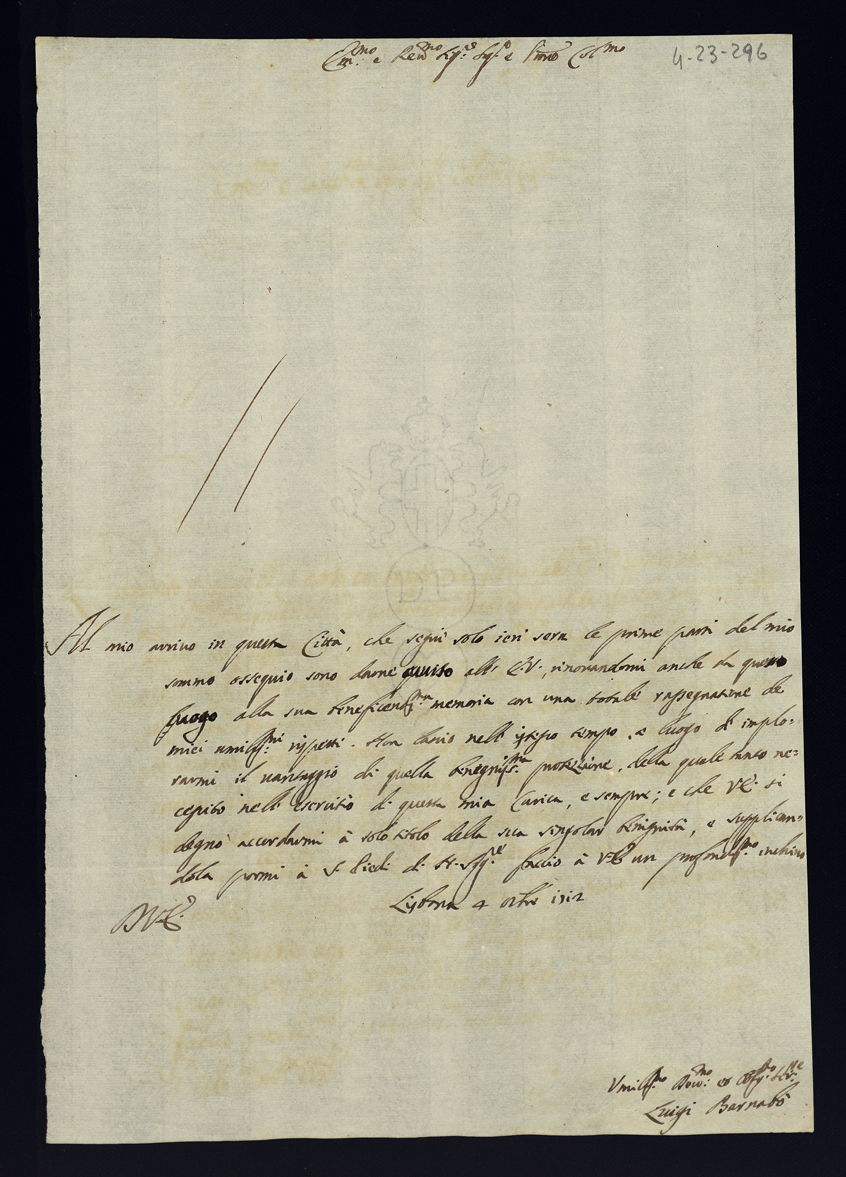 Em.mo e Rev.mo Sig.re Sig.re e P.rone Col.mo
4-23-296
Al mio arrivo in questa Città, che seguì solo ieri sera le prime parti del mio
sommo ossequio sono darne avviso all' E.V., rinovandomi anche da questo
luogo alla sua beneficentiss.ma memoria con una total rassegnazione de
miei umiliss.mi rispetti. Non lascio nell' istesso tempo, e luogo d' implo-
rarmi il vantaggio di quella benigniss.ma protezione, della quale tanto ne-
cessito nell' esercitio di questa mia Carica, e sempre; e che V.E. si
degnò accordarmi à solo titolo della sua singolar benignità, e supplican-
dola pormi à S. Piedi di N. Sig.re faccio à V.E. un profondiss.mo inchino
D V.E.
Lisbona 4 8bre 1712
Umiliss.mo Dev.mo et Obblig.mo Ser.re
Luigi Barnabò
DP